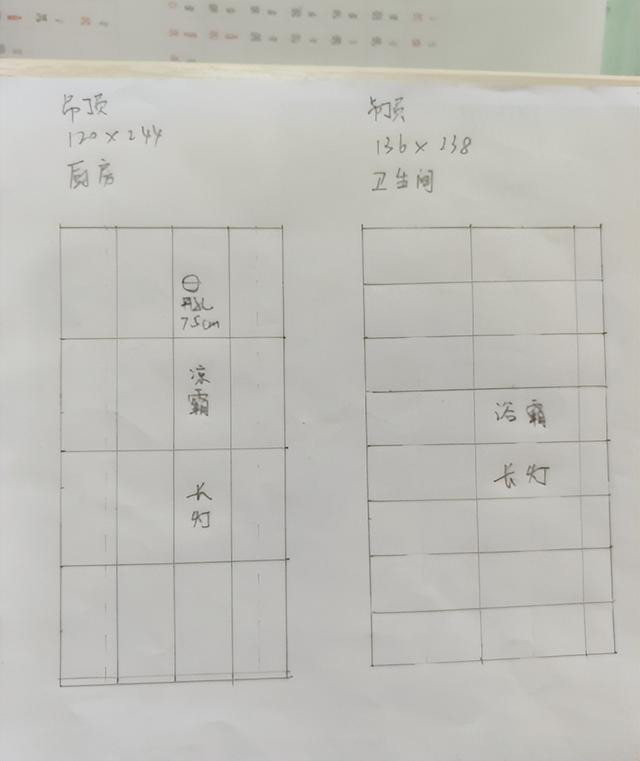 吊顶
120×244
厨房
吊顶
136×238
卫生间
开孔
7.5cm
凉
霸
长
灯
浴霸
长灯